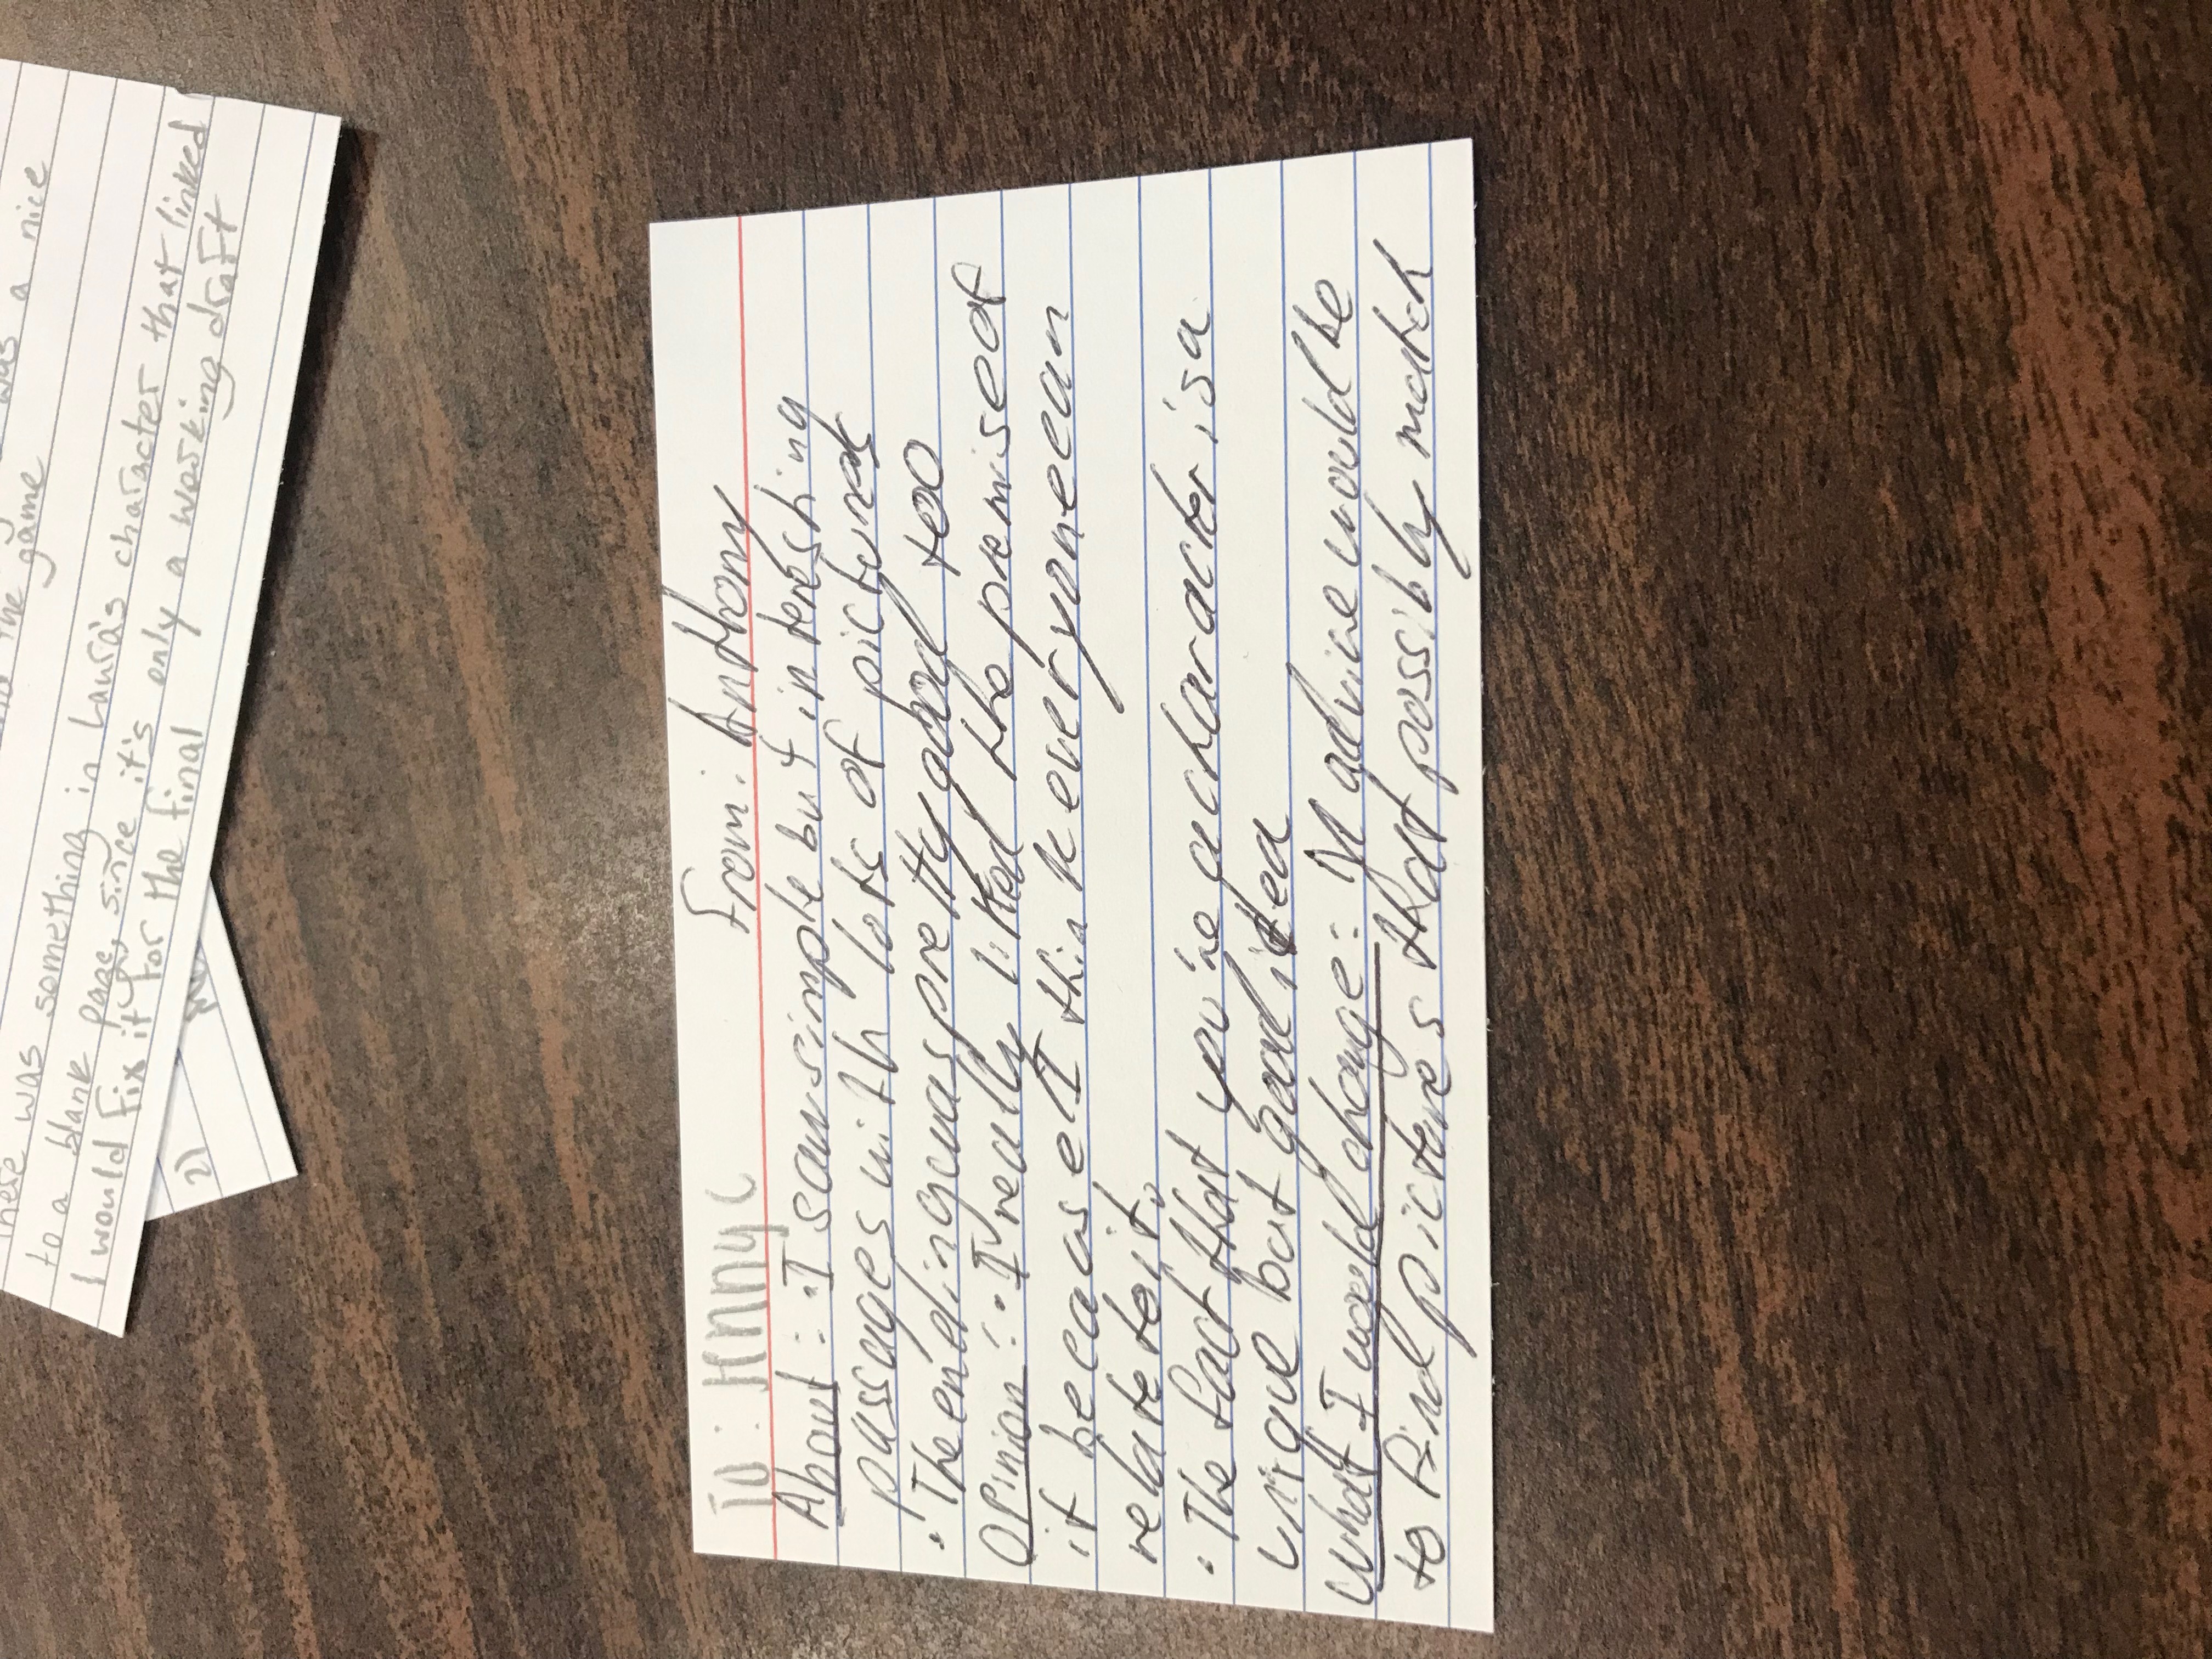 was a nice
the game
there was something in Laura's character that linked
to a blank page, since it's only a working draft
I would fix it for the final
2)
To: From: Anthony
About: • I saw simple but interesting
passages with lots of pictures
• The ending was pretty good too
Opinion: • I really liked the premise of
it because I think everyone can
relate to it.
• The fact that you're a character is a
unique but good idea
What I would change: advice would be
to find pictures that possibly match